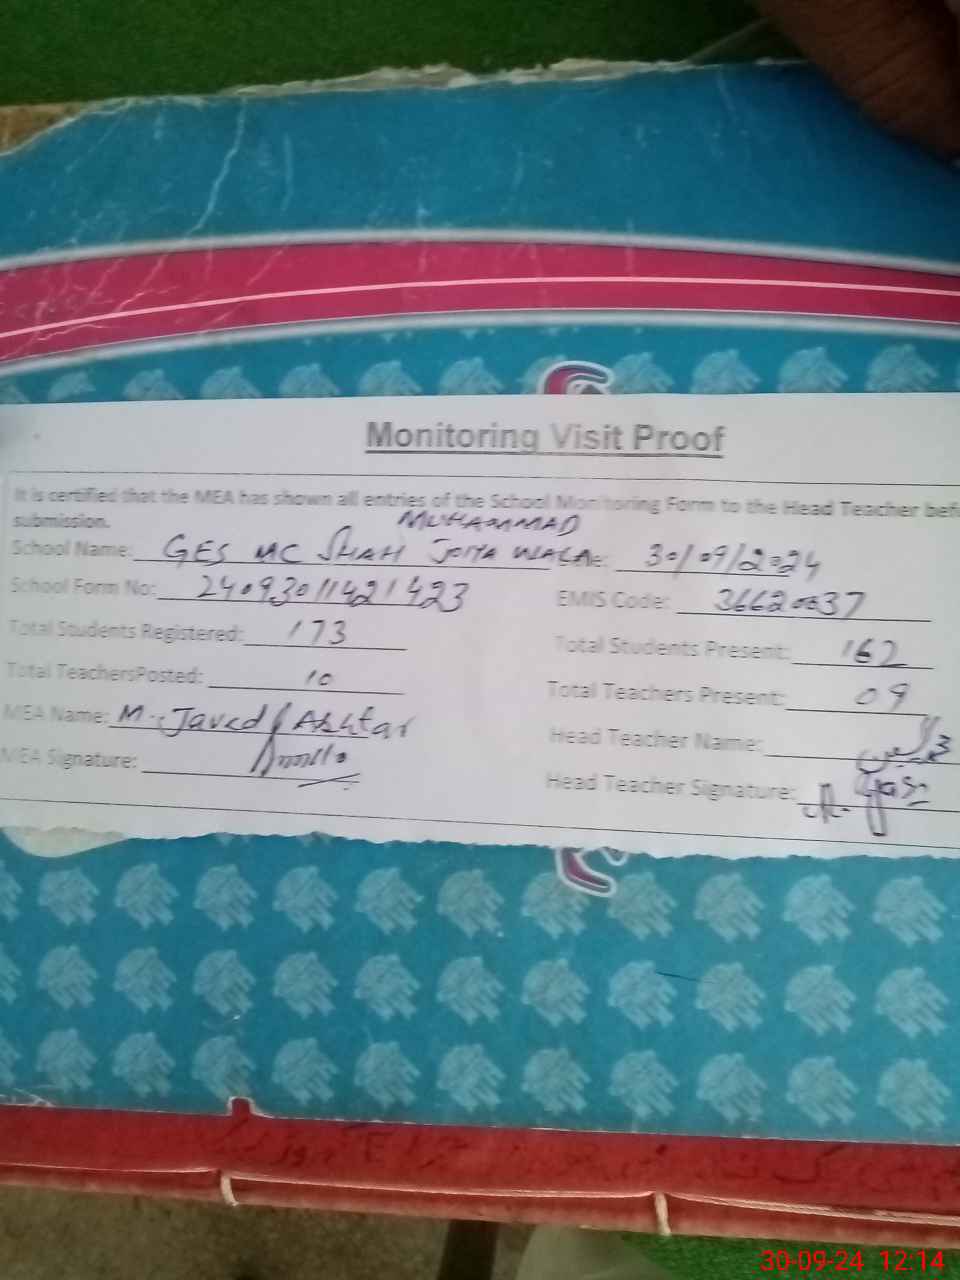 Monitoring Visit Proof
It is certified that the MEA has shown all entries of the School Monitoring Form to the Head Teacher bef
submission.
MUHAMMAD
School Name: GES MC SHAH JOTA WALA e: 30/09/2024
School Form No: 24093011421423 EMIS Code: 36620037
Total Students Registered: 173 Total Students Present: 162
Total TeachersPosted: 10 Total Teachers Present: 09
MEA Name: M. Javed Akhtar Head Teacher Name:
MEA Signature: Head Teacher Signature:
30-09-24 12:14